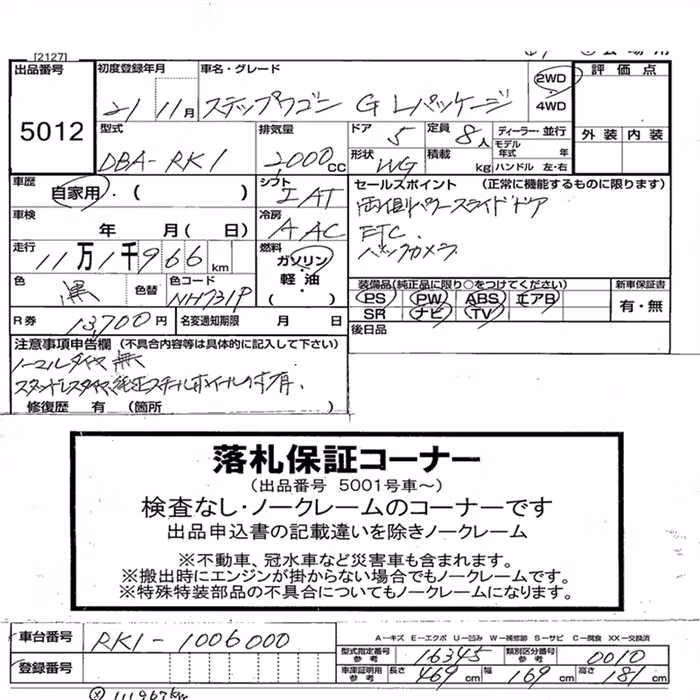 [2127]
出品番号 5012
初度登録年月 21 11月
車名・グレード ステップワゴン G Lパッケージ
2WD ・ 4WD
評価点
外装 内装
型式 DBA-RK1
排気量 2000cc
ドア 5
定員 8人
形状 WG
積載 kg
ディーラー・並行
モデル年式 年
ハンドル 左・右
車歴 自家用・( )
シフト IAT
車検 年 月( 日)
冷房 AAC
走行 11万1千966km
燃料 ガソリン・軽油・( )
色 黒 色替
色コード NH731P
セールスポイント (正常に機能するものに限ります)
両側パワースライドドア
ETC
バックカメラ
装備品(純正品に限り○をつけてください)
PS PW ABS エアB
SR ナビ TV
新車保証書 有・無
R券 13,700円
名変通知期限 月 日
後日品
注意事項申告欄 (不具合内容等は具体的に記入して下さい)
ノーマルタイヤ無
スタッドレスタイヤ純正スチールホイールのす有
修復歴 有 (箇所 )
落札保証コーナー
(出品番号 5001号車~)
検査なし・ノークレームのコーナーです
出品申込書の記載違いを除きノークレーム
※不動車、冠水車など災害車も含まれます。
※搬出時にエンジンが掛からない場合でもノークレームです。
※特殊特装部品の不具合についてもノークレームになります。
車台番号 RK1-1006000
登録番号
A-キズ E-エクボ U-凹み W-補修跡 S-サビ C-腐食 XX-交換済
型式指定番号 参考 16345 類別区分番号 参考 0010
車庫証明用 参考 長さ 469cm 幅 169cm 高さ 181cm
111967km